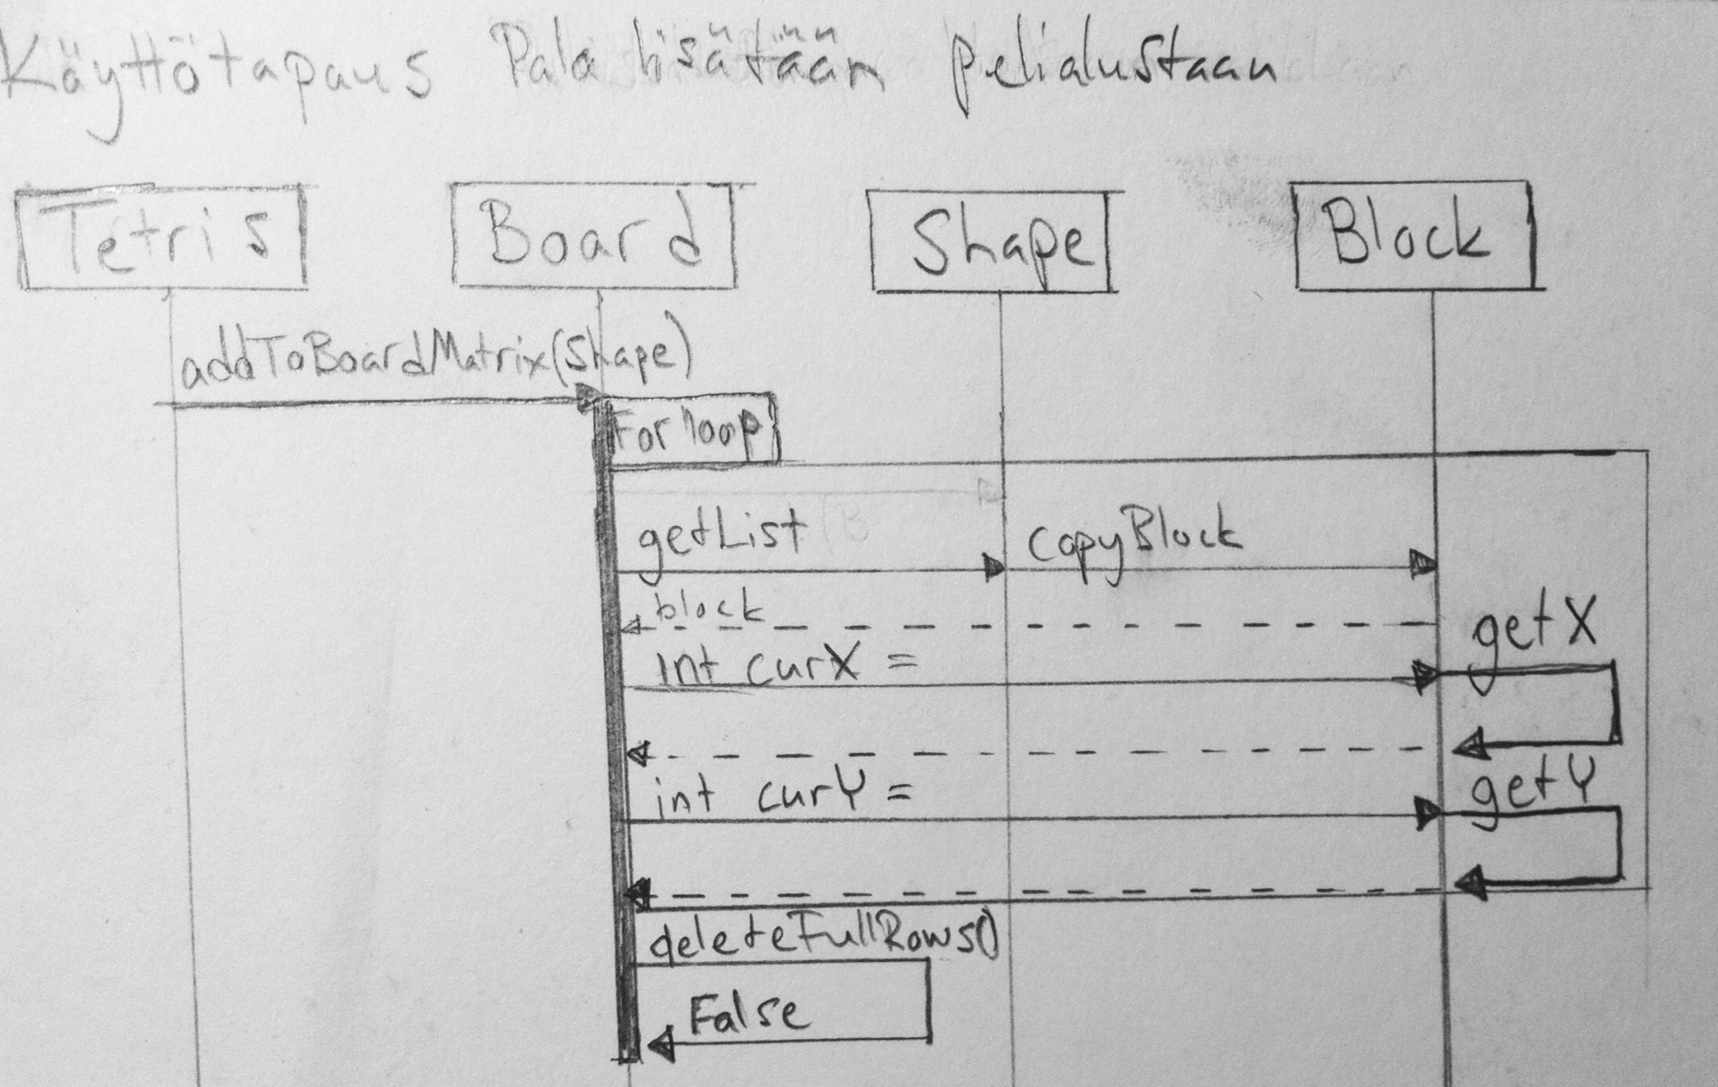 Käyttötapaus Pala lisätään pelialustaan
Tetris Board Shape Block
addToBoardMatrix(Shape)
For loop
getList copyBlock
block
getX
int curX =
getY
int curY =
deleteFullRows()
False